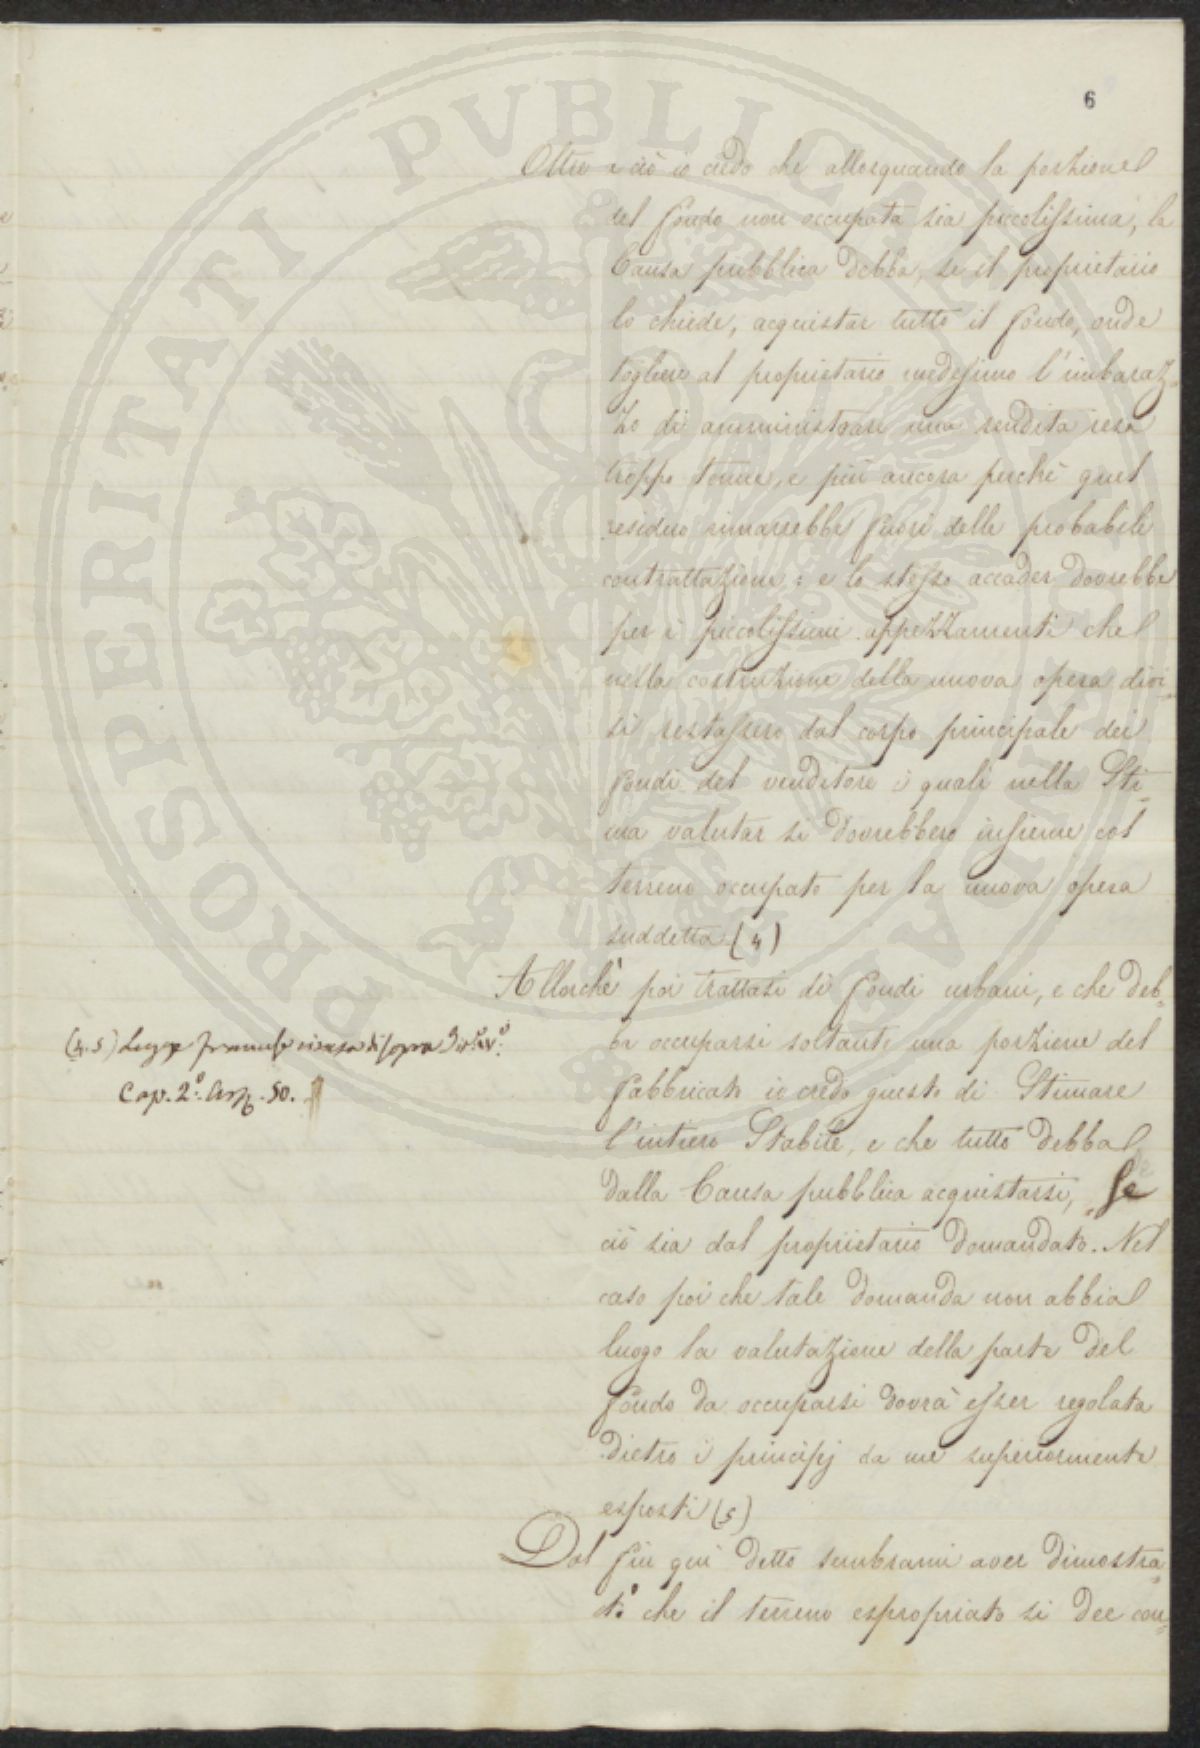 6
Oltre a ciò io credo che allorquando la porzione
del fondo non occupata sia piccolissima, la
Causa pubblica debba, se il proprietario
lo chiede, acquistar tutto il fondo, onde
togliere al proprietario medesimo l'imbaraz-
zo di amministrare una rendita resa
troppo tenue, e più ancora perchè quel
residuo rimarrebbe fuori delle probabile
contrattazione: e lo stesso accader dovrebbe
per i piccolissimi appezzamenti che
nella costruzione della nuova opera divi-
si restassero dal corpo principale dei
fondi del venditore i quali nella Sti-
ma valutar si dovrebbero insieme col
terreno occupato per la nuova opera
suddetta (4)
Allorchè poi trattasi di fondi urbani, e che deb-
ba occuparsi soltanto una porzione del
fabbricato io credo giusto di Stimare
l'intiero Stabile, e che tutto debba
dalla Causa pubblica acquistarsi, se
ciò sia dal proprietario domandato. Nel
caso poi che tale domanda non abbia
luogo la valutazione della parte del
fondo da occuparsi dovrà esser regolata
dietro i principj da me superiormente
esposti (5)
Dal fin quì detto sembrami aver dimostra-
to che il terreno espropriato si dee con-
(4.5) Legge francese di sopra
Cap. 2°. 50.
PROSPERITATI PVBLICAE